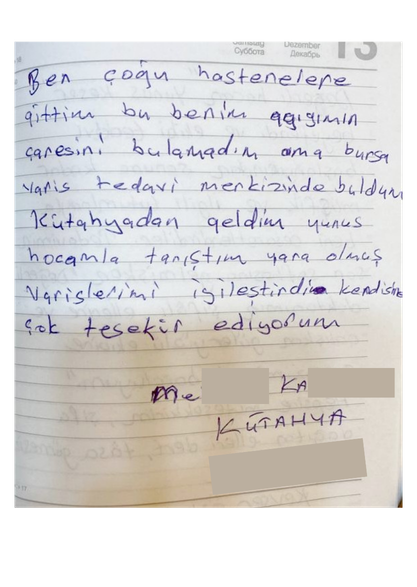 Samstag Dezember 13
Суббота Декабрь
Ben çoğu hastenelere
gittim bu benim agıgımın
çaresini bulamadım ama bursa
varis tedavi merkizinde buldum
Kütahyadan geldim yunus
hocamla tanıştım yara olmuş
varislerimi iyileştirdi kendisine
çok tesekir ediyorum
Me KA
KÜTAHYA